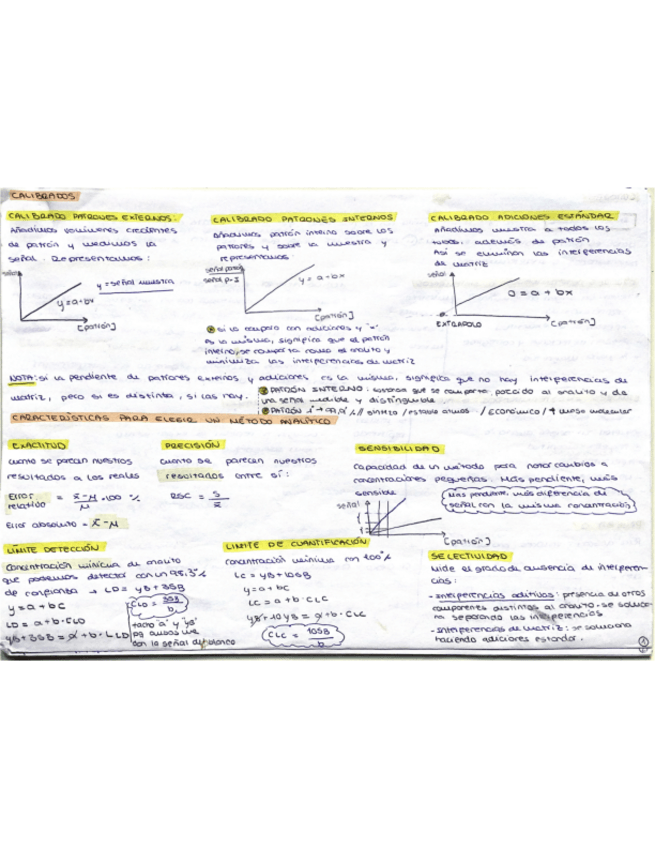 CALIBRADOS
CALIBRADO PATRONES EXTERNOS:
Añadimos volúmenes crecientes
de patrón y medimos la
señal. Representamos:
señal
y = señal muestra
y = a+bx
[patrón]
CALIBRADO PATRONES INTERNOS
añadimos patrón interno sobre los
patrones y sobre la muestra y
representamos:
señal patrón
señal p. I
y = a+bx
[patrón]
si lo comparo con adiciones y "="
es la misma, significa que el patrón
interno, se comporta como el analito y
minimiza las interferencias de matriz
CALIBRADO ADICIONES ESTÁNDAR
Añadimos muestra a todos los
además de patrón
Así se eliminan las interferencias
de matriz
señal
0 = a + bx
EXTRAPOLO
[patrón]
NOTA: si la pendiente de patrones externos y adiciones es la misma, significa que no hay interferencias de
matriz, pero si es distinta, si las hay.
PATRÓN INTERNO: sustancia que se comporta parecido al analito y da
una señal medible y distinguible
PATRÓN 1º → 99,9% // / estable atmos. / ECONÓMICO / ↑ masa molecular
CARACTERÍSTICAS PARA ELEGIR UN MÉTODO ANALÍTICO
EXACTITUD
cuanto se parecen nuestros
resultados a los reales
Error relativo = x̄-μ / μ · 100 %
Error absoluto = x̄-μ
PRECISIÓN
cuanto se parecen nuestros
resultados entre sí:
RSC = s / x̄
SENSIBILIDAD
capacidad de un método para notar cambios a
concentraciones pequeñas. Más pendiente, más
sensible
Más pendiente, más diferencia de
señal con la misma concentración
señal
[patrón]
LÍMITE DETECCIÓN
Concentración mínima de analito
que podemos detectar con un 98,3%
de confianza → LD = yB + 3SB
y = a + bc
LD = a + b·CLD
yB + 3SB = a + b·LLD
CLD = 3SB / b
tacho "a" y "yB"
pq ambos
con la señal del blanco
LIMITE DE CUANTIFICACIÓN
concentración mínima con 100%
LC = yB + 10SB
y = a + bc
LC = a + b·CLC
yB + 10yB = a + b·CLC
CLC = 10SB / b
SELECTIVIDAD
Mide el grado de ausencia de interferen-
cias:
- Interferencias aditivas: presencia de otros
componentes distintos al analito. se solucio-
na separando las interferencias
- Interferencias de matriz: se soluciona
haciendo adiciones estándar.